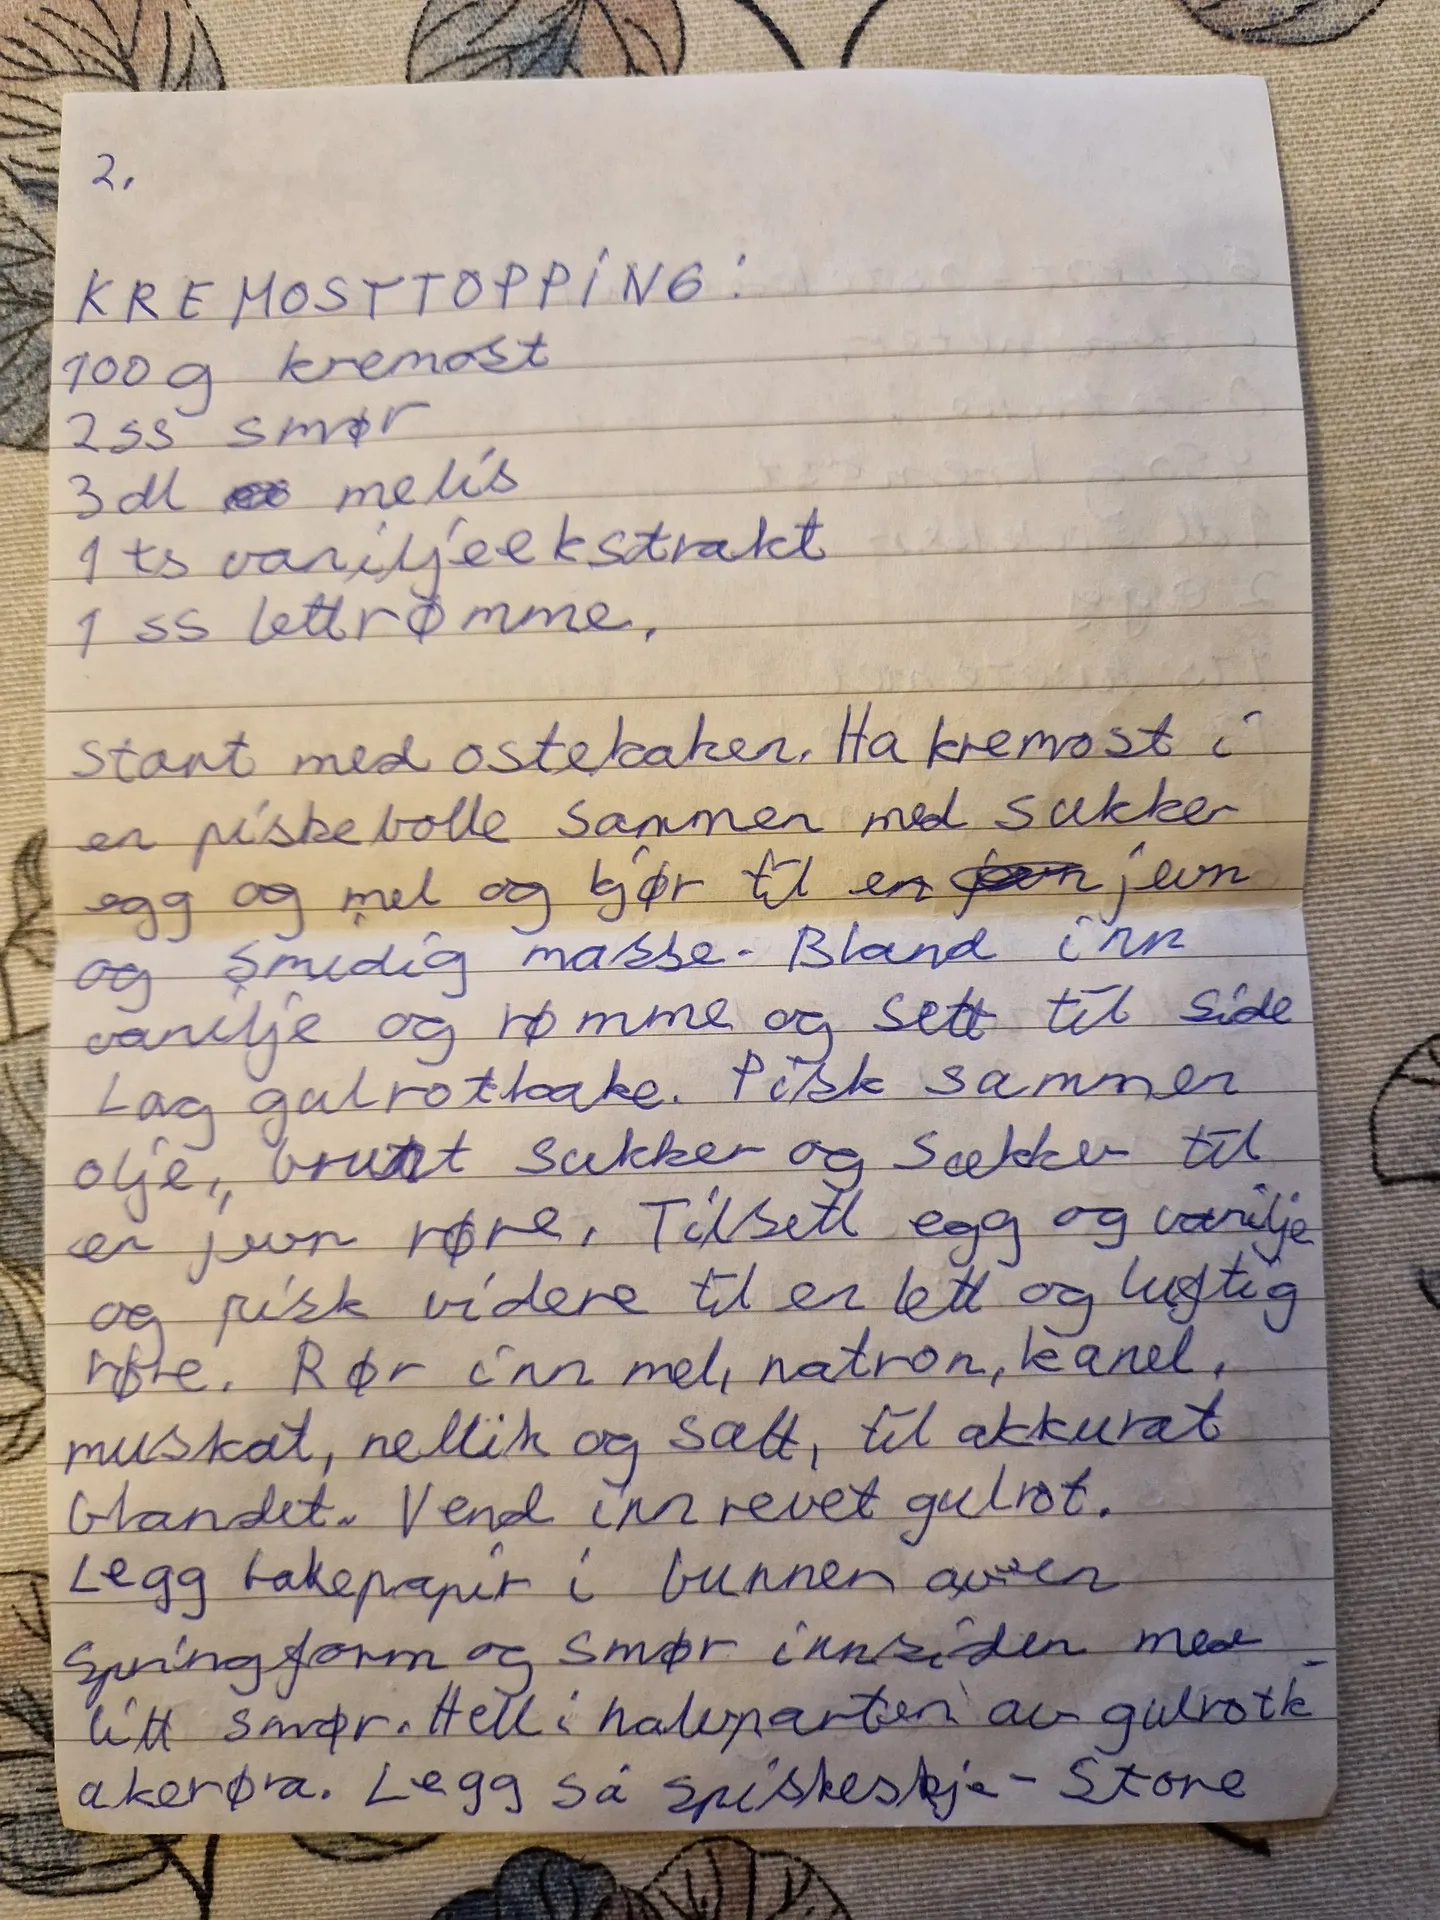 2.
KREMOSTTOPPING:
100 g kremost
2 ss smør
3 dl melis
1 ts vaniljeekstrakt
1 ss lettrømme.
Start med ostekaken. Ha kremost i
en piskebolle sammen med sukker
egg og mel og kjør til en jevn
og smidig masse. Bland inn
vanilje og rømme og sett til side
Lag gulrotkake. Pisk sammen
olje, brunt sukker og sukker til
en jevn røre. Tilsett egg og vanilje
og pisk videre til en lett og luftig
røre. Rør inn mel, natron, kanel,
muskat, nellik og salt, til akkurat
blandet. Vend inn revet gulrot.
Legg bakepapir i bunnen av en
springform og smør innsiden med
litt smør. Hell i halvparten av gulrotk
akerøra. Legg så spiskeskje - Store